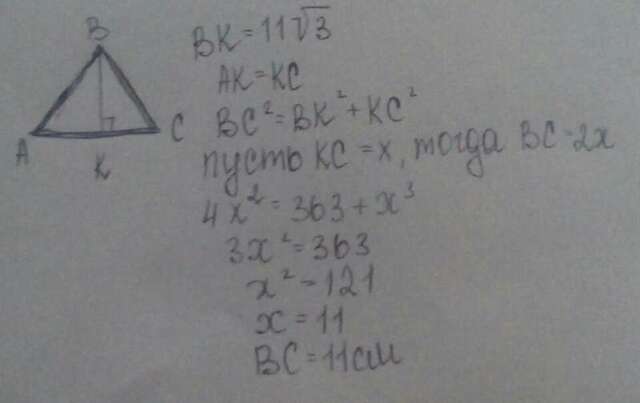 B
A
C
K
BK = 11√3
AK = KC
BC² = BK² + KC²
пусть KC = x, тогда BC = 2x
4x² = 363 + x³
3x² = 363
x² = 121
x = 11
BC = 11см